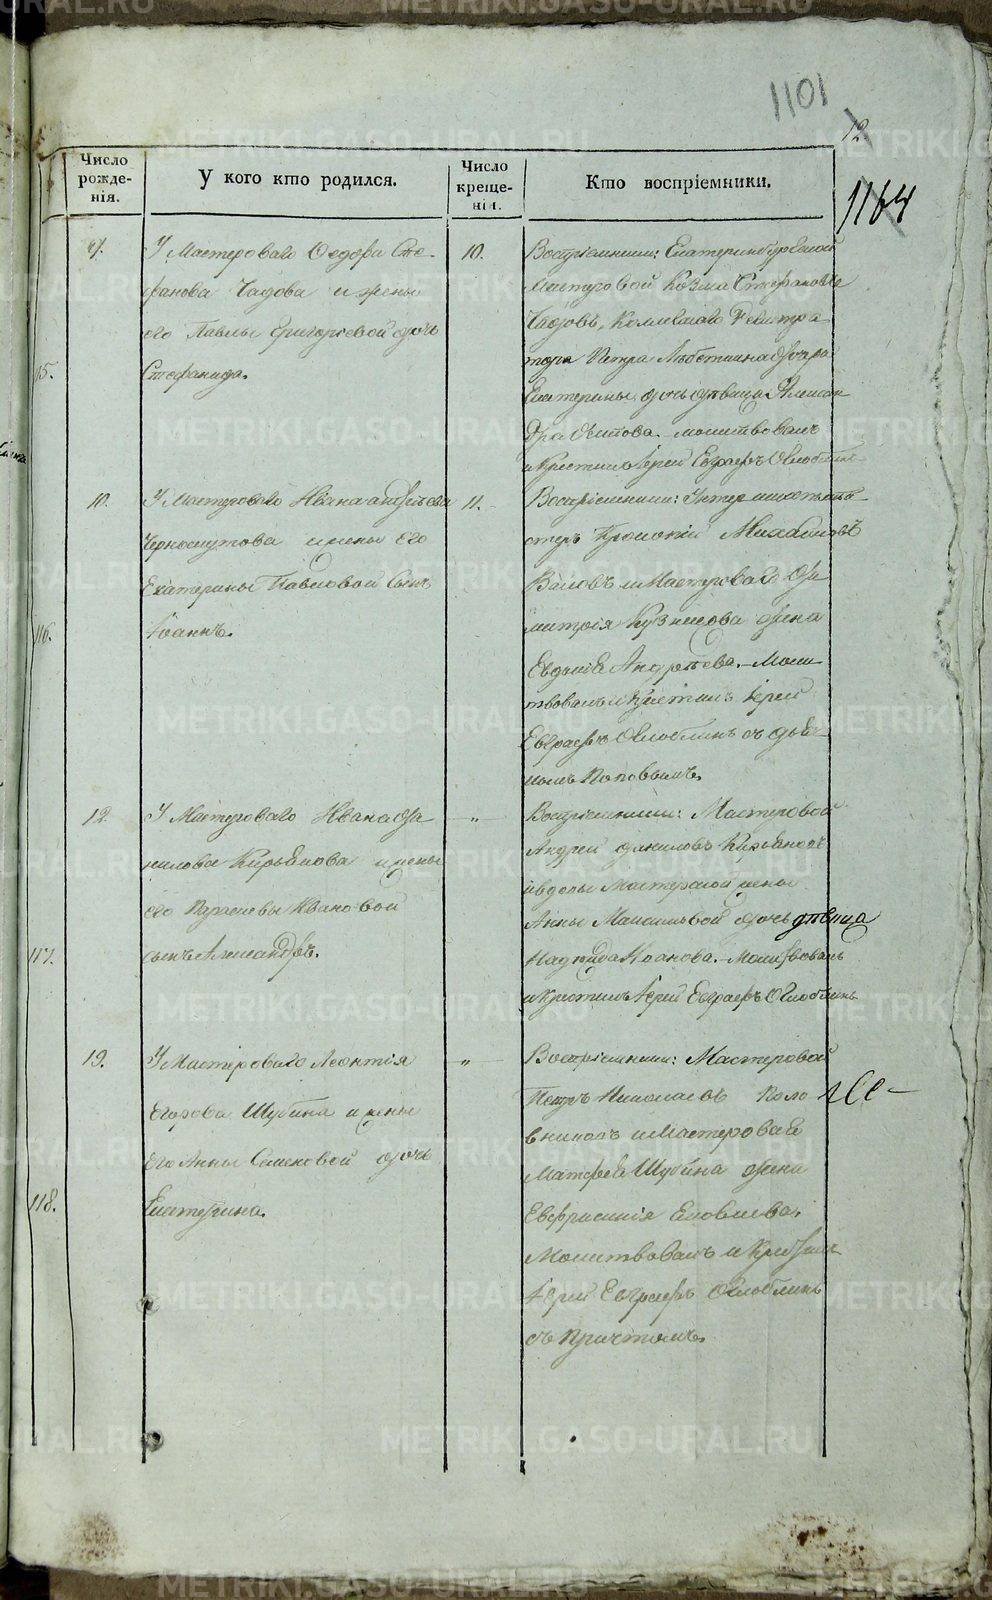 1101
12
1164
Число рожде- нія.
У кого кто родился.
Число креще- нія.
Кто воспріемники.
115.
9.
У Мастероваго Ѳедора Сте-
фанова Чадова и жены
его Павлы Григорьевой дочь
Стефанида.
10.
Воспріемники: Екатеринбургскій
Мастеровой Козма Стефановъ
Чадовъ, Коллежскаго Регистра
тора Петра
Екатерины дочь девица Алексан
дра Осипова. молитвовалъ
и Крестилъ Іерей Евграфъ Оглоблинъ
116.
10.
У Мастероваго Ивана Андрѣева
Черноскутова и жены его
Екатерины Павловой сынъ
Іоаннъ.
11.
Воспріемники: Унтер
Прокопій Михайловъ
и Мастероваго Ди
митрія Кузнецова жена
Евдокія Андрѣева. Моли
твовалъ и Крестилъ Іерей
Евграфъ Оглоблинъ съ дьяч
комъ Поповымъ.
117.
12.
У Мастероваго Ивана Да
нилова Кирьянова и жены
его Парасковьи Ивановой
сынъ Александръ.
"
Воспріемники: Мастеровой
Андрей Даниловъ Кирьяновъ
и вдовы Мастерской жены
Анны Максимовой дочь дѣвица
Надежда Иванова. Молитвовалъ
и Крестилъ Іерей Евграфъ Оглоблинъ
118.
19.
У Мастероваго Леонтія
Егорова Шубина и жены
его Анны Семеновой дочь
Екатерина.
"
Воспріемники: Мастеровой
Петръ Николаевъ Поло
вниковъ и Мастероваго
Матфея Шубина жена
Евфросинія
Молитвовалъ и Крестилъ
Іерей Евграфъ Оглоблинъ
съ Причтомъ.
METRIKI.GASO-URAL.RU